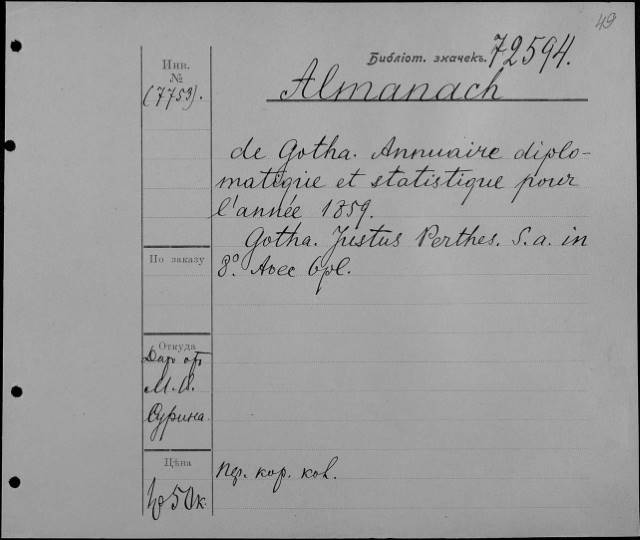 49
Библіот. значекъ. 72594.
Инв.
№
(7753).
Almanach
de Gotha. Annuaire diplo-
matique et statistique pour
l'année 1859.
Gotha. Justus Perthes. S. a. in
8°. Avec 6 pl.
По заказу
Откуда
Даръ отъ
М.
Сурина.
Цѣна
50к
Пер. кор. ков.